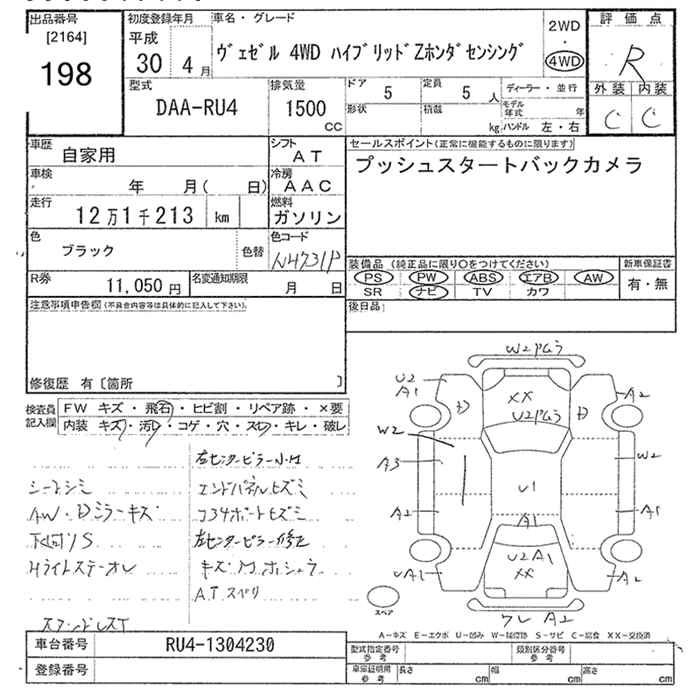 出品番号
[2164]
198
初度登録年月
平成
30 4月
車名・グレード
ヴェゼル 4WD ハイブリッドZホンダセンシング
2WD
・
4WD
評価点
R
外装 内装
C C
型式
DAA-RU4
排気量
1500
CC
ドア
5
定員
5 人
形状
積載
kg
ディーラー・並行
モデル
年式 年
ハンドル 左・右
車歴
自家用
シフト
AT
車検
年 月( 日)
冷房
AAC
走行
12万1千213 km
燃料
ガソリン
色
ブラック
色替
色コード
NH731P
R券
11,050 円
名変通知期限
月 日
セールスポイント(正常に機能するものに限ります)
プッシュスタートバックカメラ
装備品 (純正品に限り○をつけてください)
PS PW ABS エアB AW
SR ナビ TV カワ
新車保証書
有・無
後日品
注意事項申告欄(不具合内容等は具体的に記入して下さい)。
修復歴 有〔箇所 〕
検査員
記入欄
FW キズ・飛石・ヒビ割・リペア跡・×要
内装 キズ・汚レ・コゲ・穴・スレ・キレ・破レ
シートシミ
AW・Dミラーキズ
下回りS
エンドパネルヒズミ
コアサポートヒズミ
左センターピラー修正
W2
XX
U2
A1
D
D
A2
W2
A3
W2
A2
U1
A1
A1
U2A1
XX
UA1
A2
スペア
A2
A-キズ E-エクボ U-凹み W-補修跡 S-サビ C-腐食 XX-交換済
車台番号
RU4-1304230
登録番号
型式指定番号
参考
類別区分番号
参考
車庫証明用
参考
長さ cm
幅 cm
高さ cm